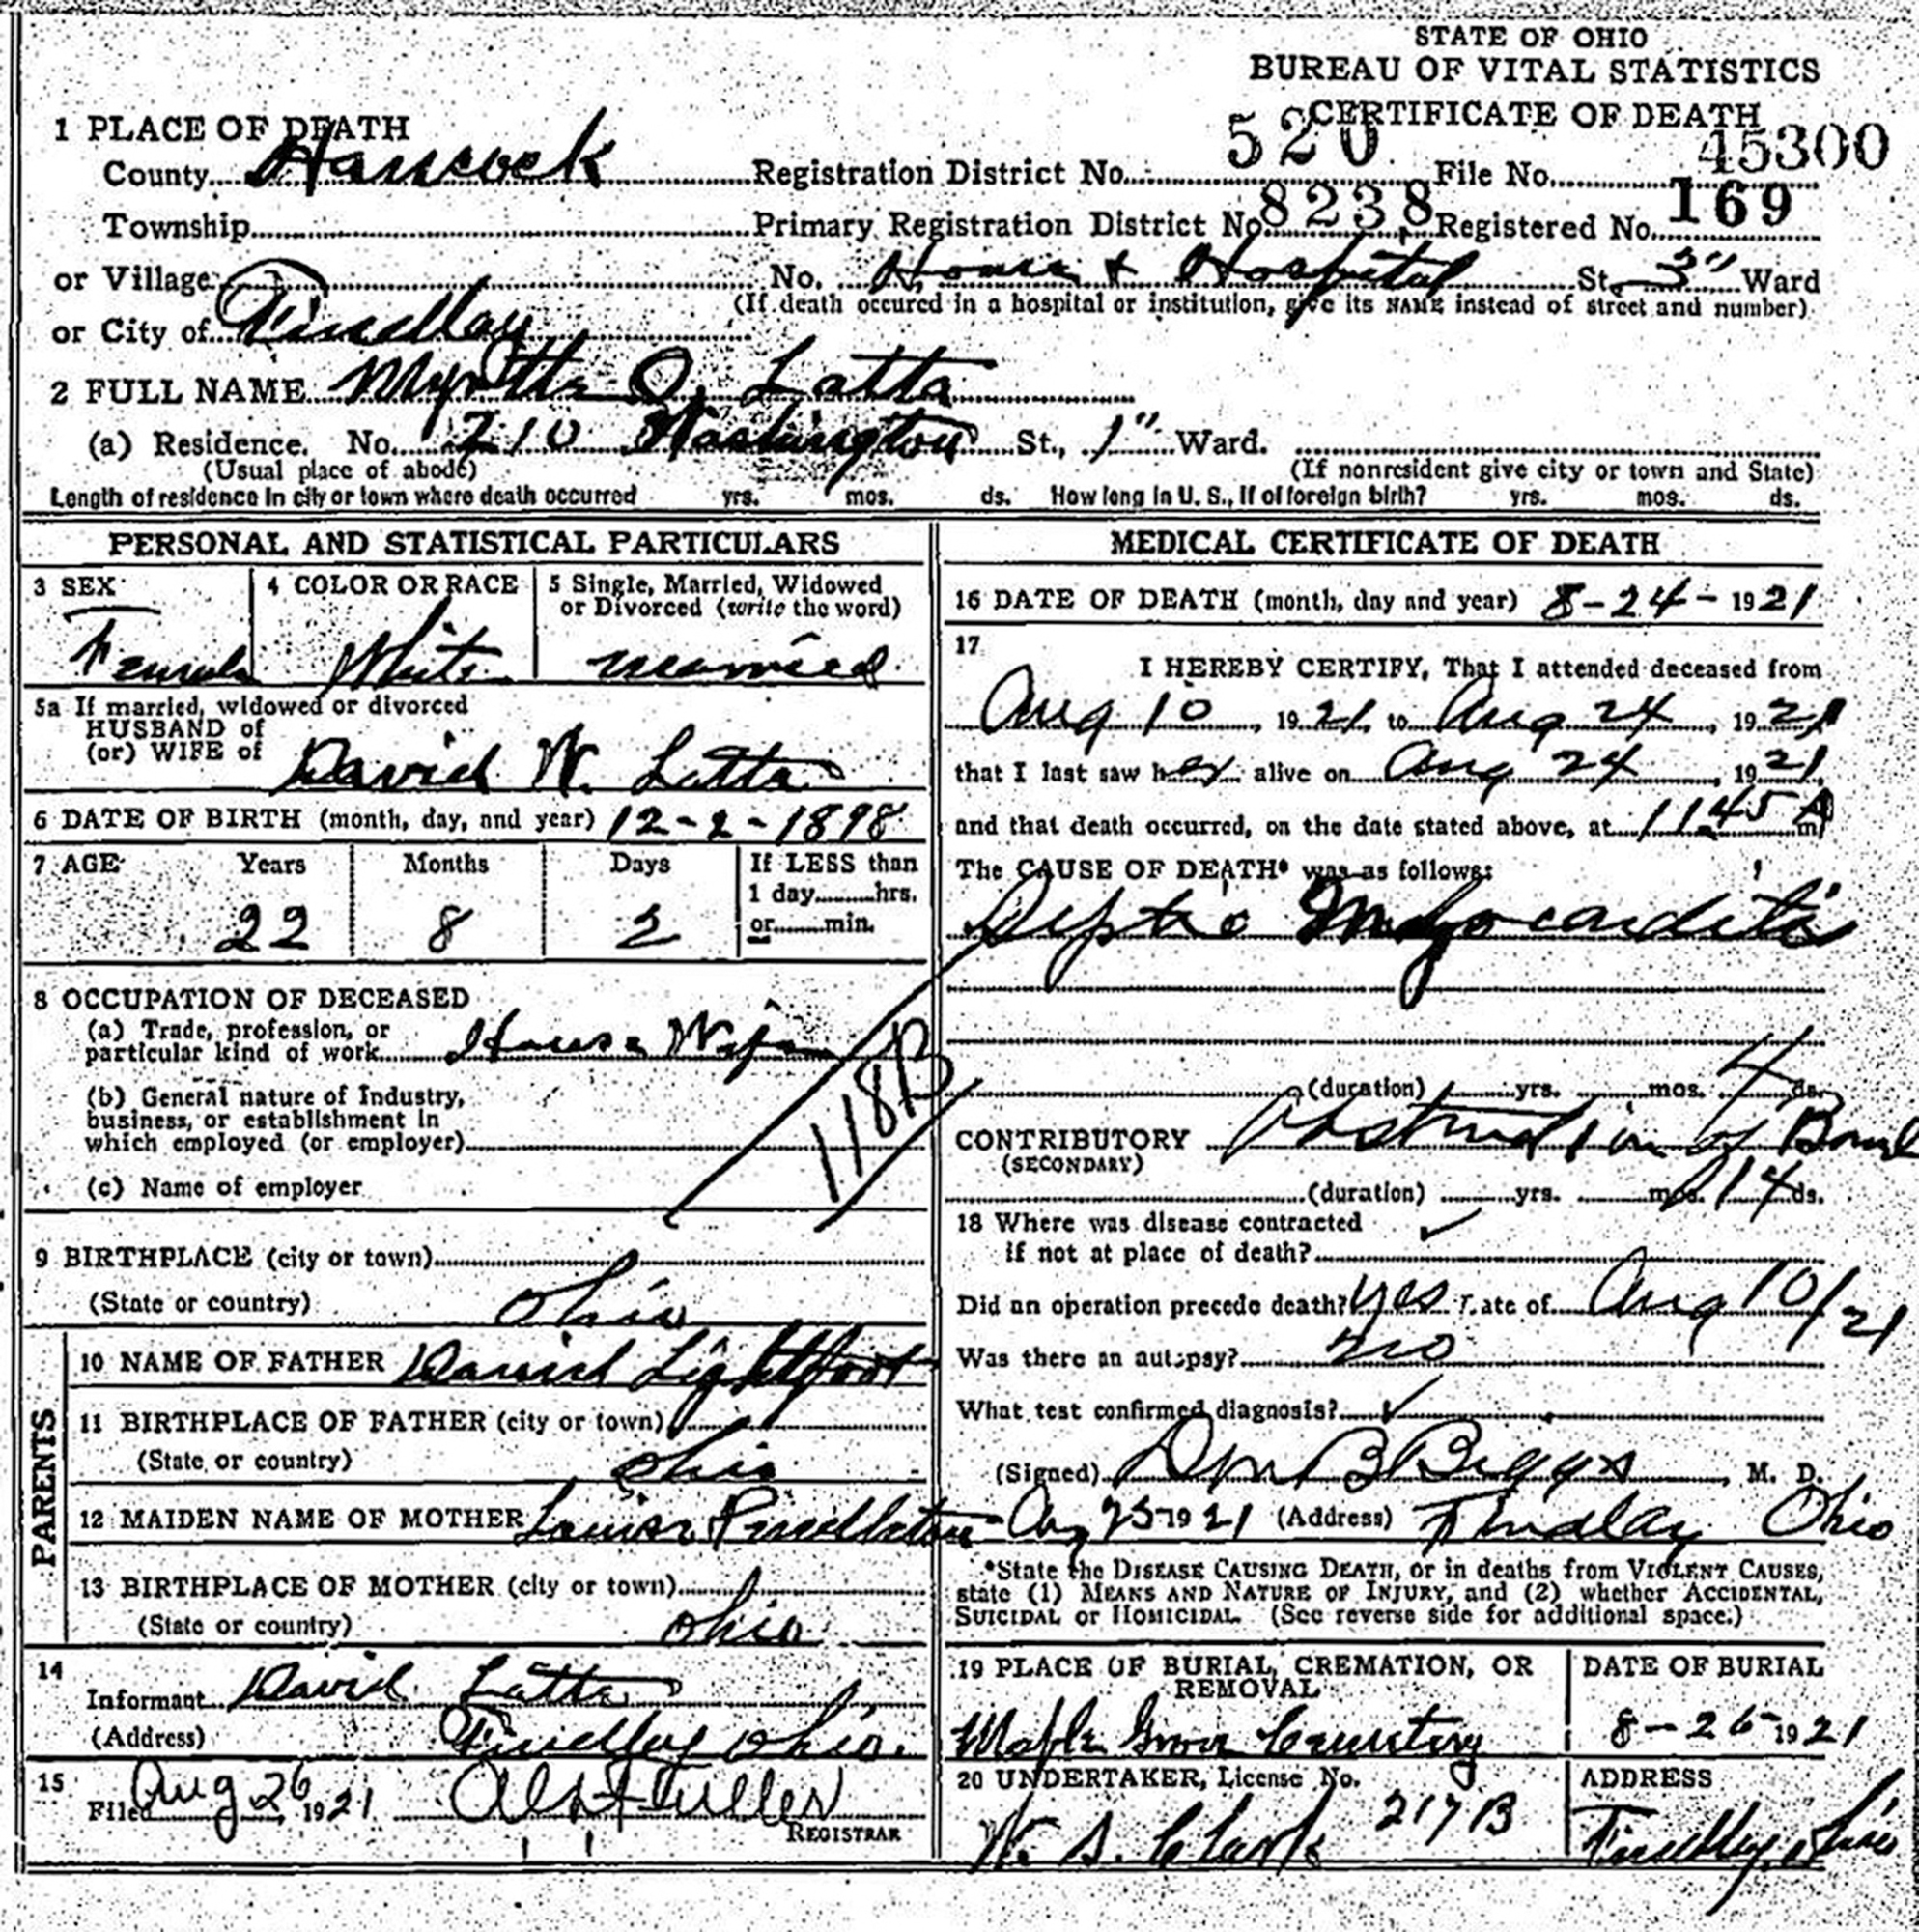 STATE OF OHIO
BUREAU OF VITAL STATISTICS
CERTIFICATE OF DEATH
1 PLACE OF DEATH
County Hancock Registration District No. 520 File No. 45300
Township Primary Registration District No. 8238 Registered No. 169
or Village No. Home & Hospital St. 3" Ward
(If death occured in a hospital or institution, give its NAME instead of street and number)
or City of Findlay
2 FULL NAME Myrtle O. Latta
(a) Residence. No. 210 Washington St., 1" Ward.
(Usual place of abode) (If nonresident give city or town and State)
Length of residence in city or town where death occurred yrs. mos. ds. How long in U. S., if of foreign birth? yrs. mos. ds.
PERSONAL AND STATISTICAL PARTICULARS
3 SEX 4 COLOR OR RACE 5 Single, Married, Widowed
or Divorced (write the word)
Female White married
5a If married, widowed or divorced
HUSBAND of
(or) WIFE of David W. Latta
6 DATE OF BIRTH (month, day, and year) 12-2-1898
7 AGE Years Months Days If LESS than
1 day hrs.
22 8 2 or min.
8 OCCUPATION OF DECEASED
(a) Trade, profession, or
particular kind of work House Wife
(b) General nature of Industry,
business, or establishment in
which employed (or employer)
(c) Name of employer
118B
9 BIRTHPLACE (city or town)
(State or country) Ohio
PARENTS
10 NAME OF FATHER David Lightfoot
11 BIRTHPLACE OF FATHER (city or town)
(State or country) Ohio
12 MAIDEN NAME OF MOTHER Louisa Pendleton
13 BIRTHPLACE OF MOTHER (city or town)
(State or country) Ohio
14
Informant David Latta
(Address) Findlay Ohio.
15
Filed Aug 26, 1921
REGISTRAR
MEDICAL CERTIFICATE OF DEATH
16 DATE OF DEATH (month, day and year) 8-24-1921
17
I HEREBY CERTIFY, That I attended deceased from
Aug 10, 1921, to Aug 24, 1921
that I last saw her alive on Aug 24, 1921,
and that death occurred, on the date stated above, at 11.45 A m
The CAUSE OF DEATH* was as follows:
Septic Myocarditis
(duration) yrs. mos. 4 ds.
CONTRIBUTORY Obstruction of Bowel
(SECONDARY)
(duration) yrs. mos. 14 ds.
18 Where was disease contracted
if not at place of death?
Did an operation precede death? yes Date of Aug 10/21
Was there an autopsy? no
What test confirmed diagnosis?
(Signed) B Biggs, M. D.
Aug 25 1921 (Address) Findlay Ohio
*State the DISEASE CAUSING DEATH, or in deaths from VIOLENT CAUSES,
state (1) MEANS AND NATURE OF INJURY, and (2) whether ACCIDENTAL,
SUICIDAL or HOMICIDAL. (See reverse side for additional space.)
19 PLACE OF BURIAL, CREMATION, OR
REMOVAL
Maple Grove Cemetery
DATE OF BURIAL
8-26-1921
20 UNDERTAKER, License No. 217B
W. S. Clark
ADDRESS
Findlay, Ohio